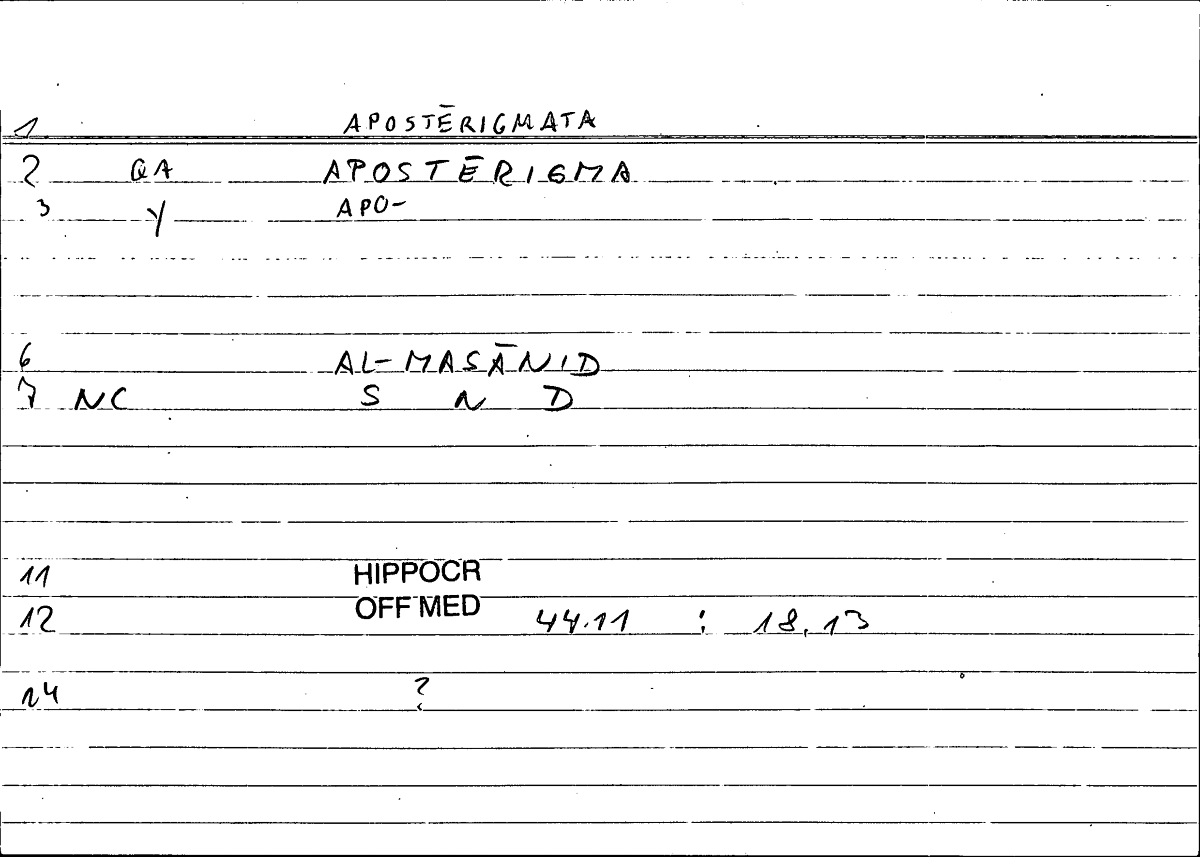 1 APOSTĒRIGMATA
2 QA APOSTĒRIGMA
3 Y APO-
6 AL-MASĀNID
7 NC S N D
11 HIPPOCR
12 OFF MED 44.11 : 18,13
14 ?